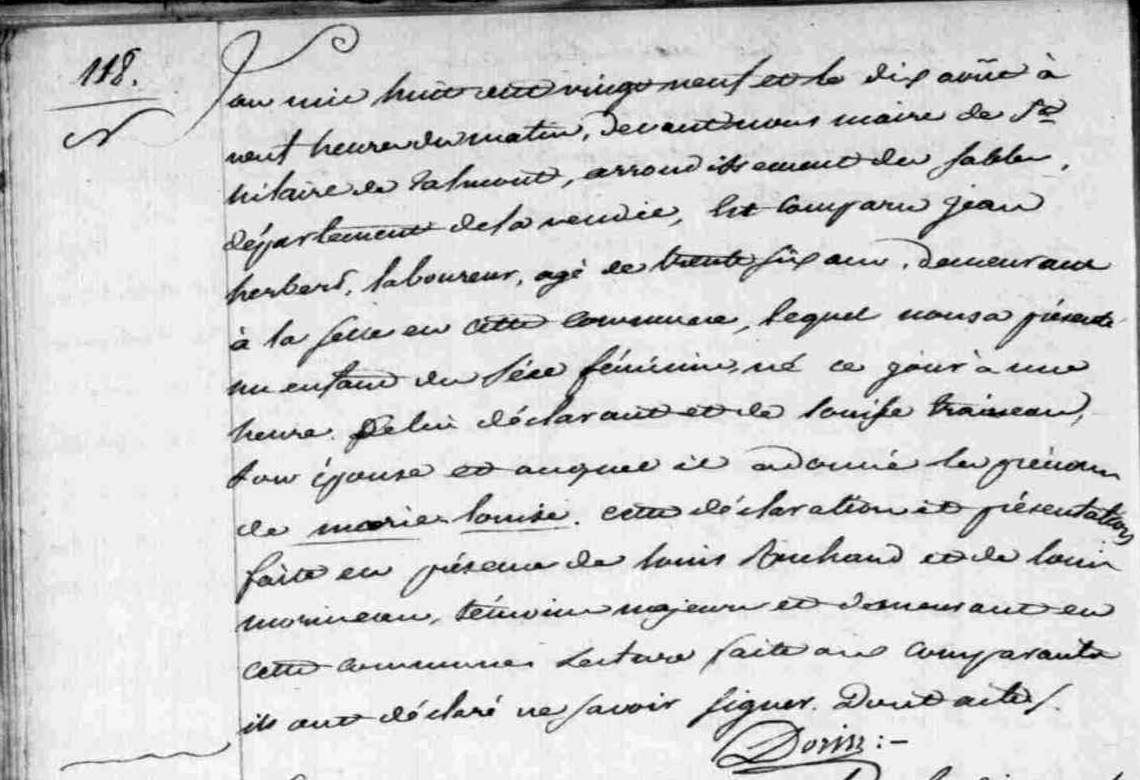 118.
N
L'an mil huit cent vingt neuf et le dix août à
neuf heures du matin, devant nous maire de St
hilaire de talmont, arrondissement des sables,
département de la vendée, Est comparu jean
herbert, laboureur, agé de trente six ans, demeurant
à la en cette commune, lequel nous a présenté
un enfant du séxe féminin, né ce jour à une
heure. De lui déclarant et de louise traineau,
son épouse et auquel il a donné les prénoms
de marie louise. cette déclaration et présentation
faite en présence de louis et de louis
morineau, témoins majeurs et demeurant en
cette commune. Lecture faite aux comparants
ils ont déclaré ne savoir signer. Dont acte
Dorin :-